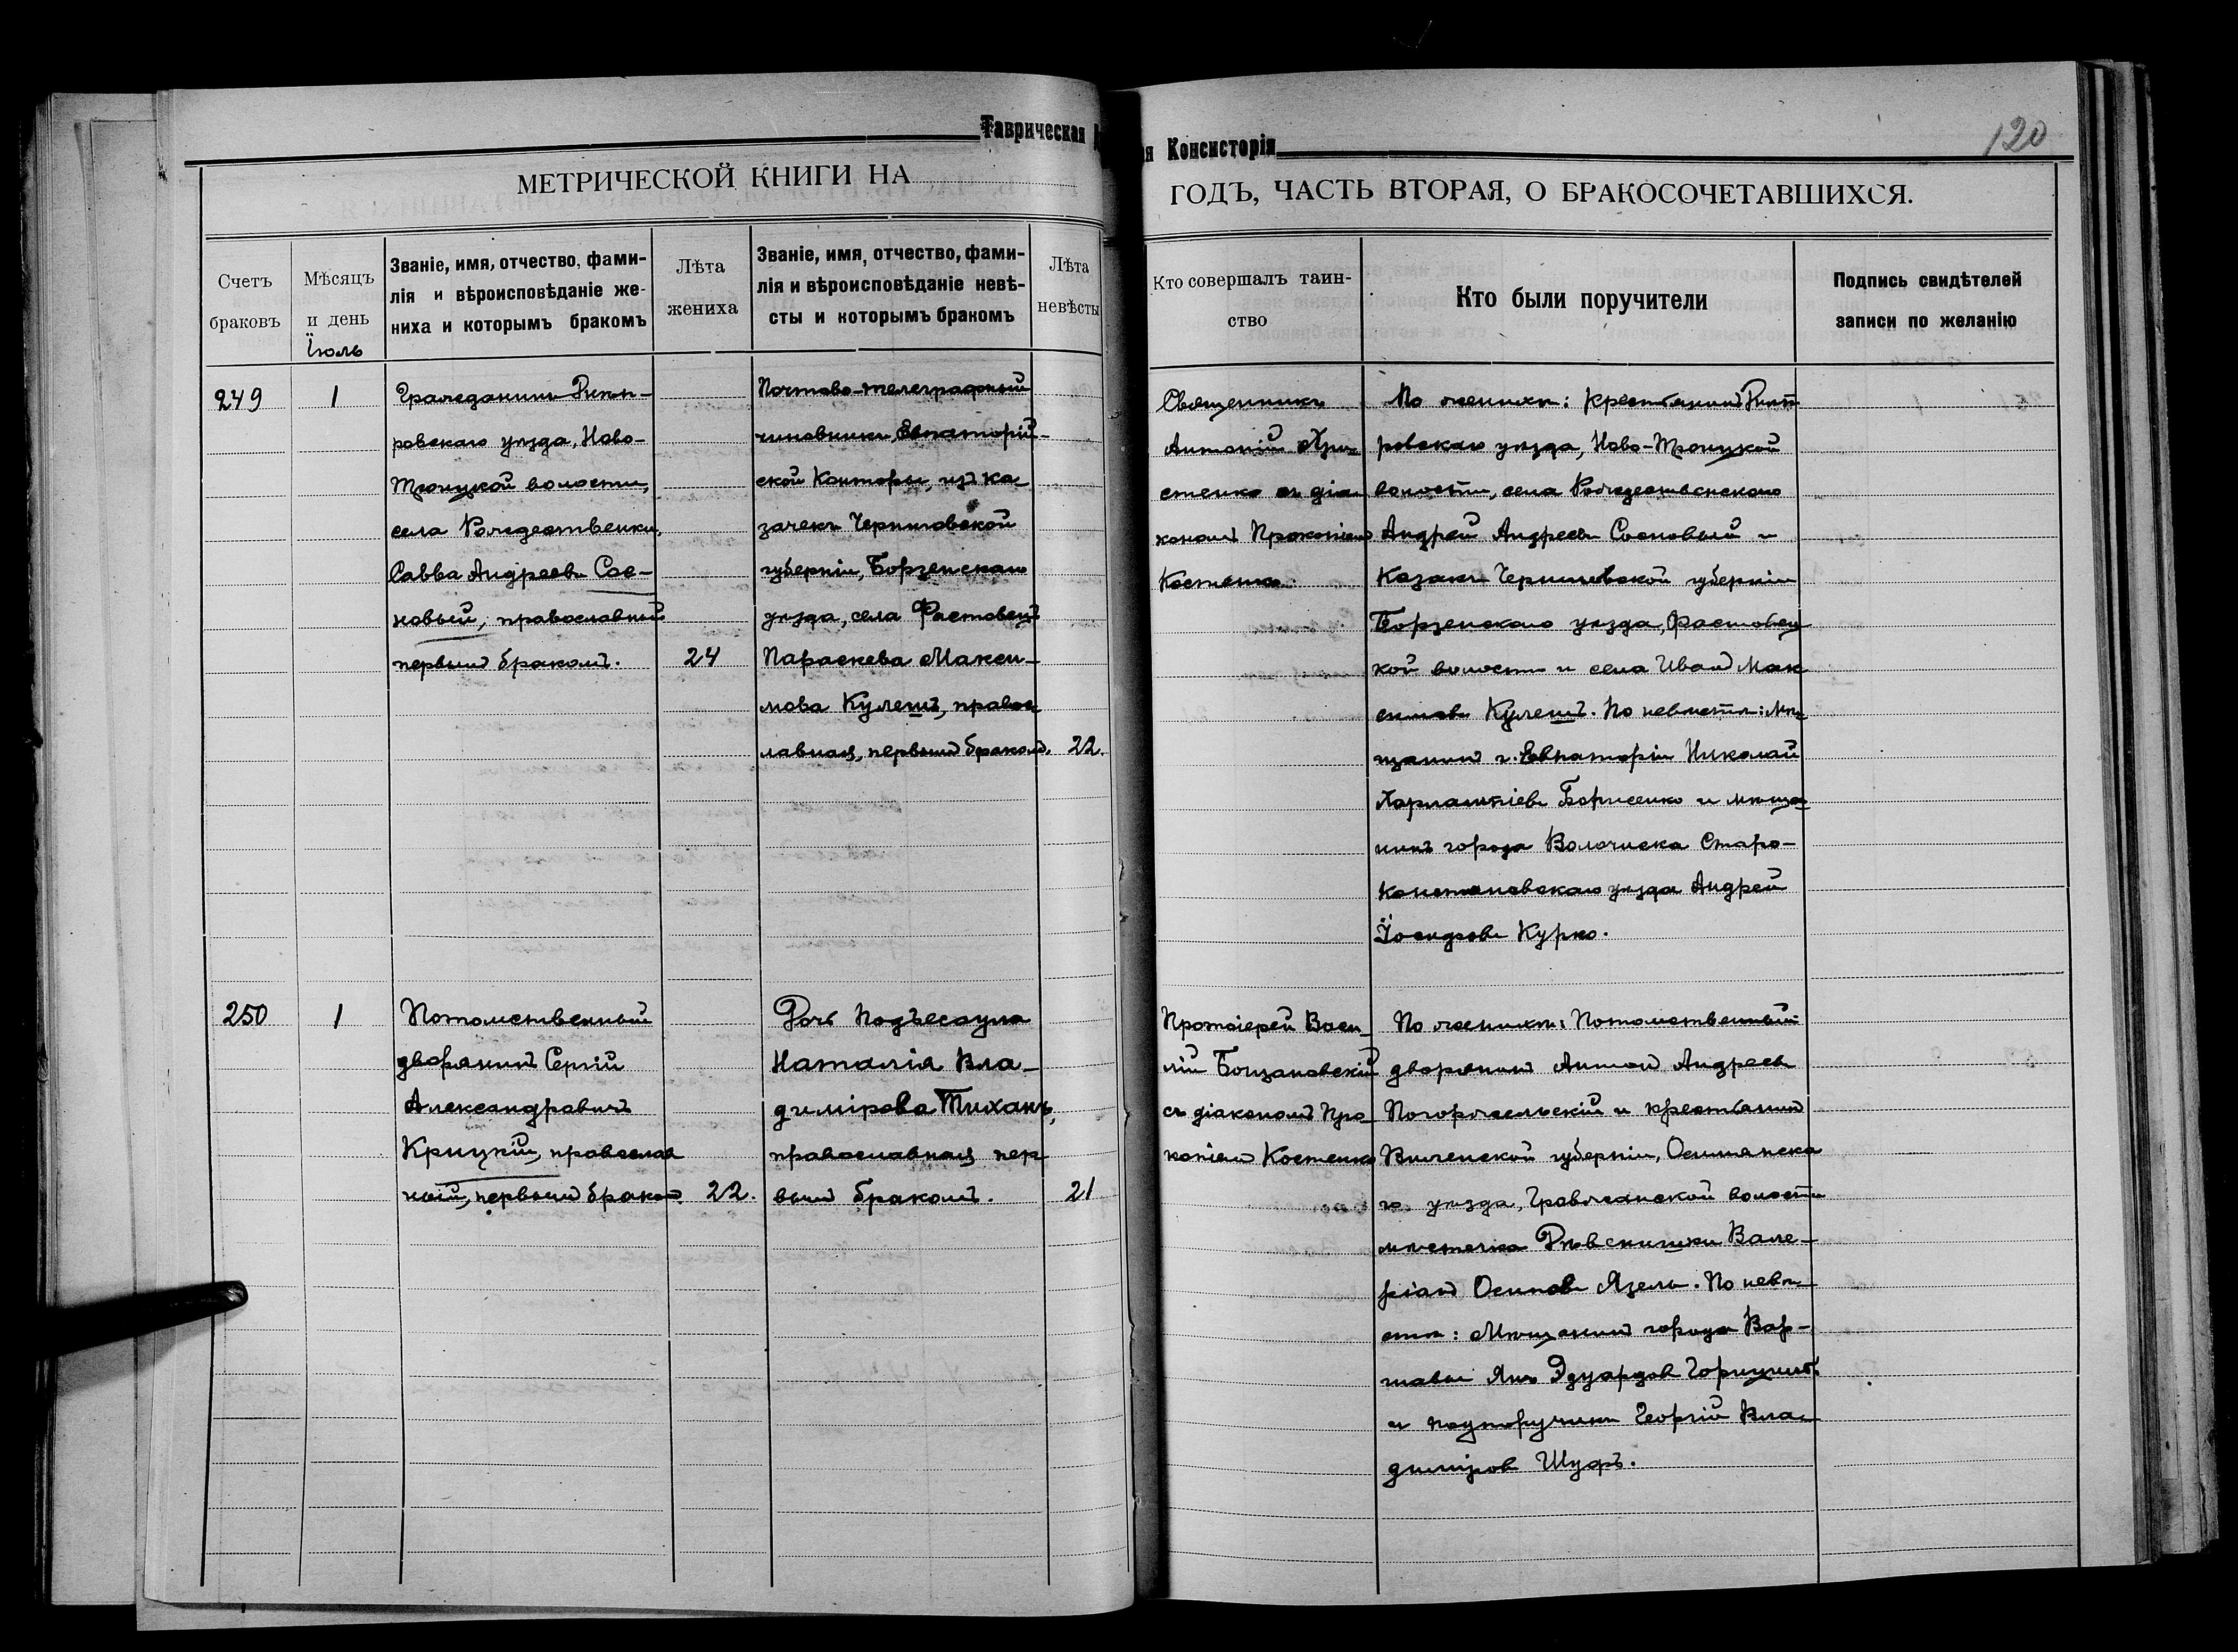 Таврическая
я Консисторія
120
МЕТРИЧЕСКОЙ КНИГИ НА
ГОДЪ, ЧАСТЬ ВТОРАЯ, О БРАКОСОЧЕТАВШИХСЯ.
Счетъ
браковъ
Мѣсяцъ
и день
Іюль
Званіе, имя, отчество, фами-
лія и вѣроисповѣданіе же-
ниха и которымъ бракомъ
Лѣта
жениха
Званіе, имя, отчество, фами-
лія и вѣроисповѣданіе невѣ-
сты и которымъ бракомъ
Лѣта
невѣсты
Кто совершалъ таин-
ство
Кто были поручители
Подпись свидѣтелей
записи по желанію
249
1
Гражданинъ Днѣп-
ровскаго уѣзда, Ново-
Троицкой волости,
села Рождественки,
Савва Андреевъ Сос-
новый, православный
первымъ бракомъ.
24
Почтово-телеграфный
чиновникъ Евпаторій-
ской Конторы, изъ ка-
зачекъ Черниговской
губерніи, Борзенскаго
уѣзда, села Фастовецъ
Параскева Макси-
мова Кулешъ, правос
лавная, первымъ бракомъ.
22.
Священникъ
Антоній
стенко съ діа
кономъ Прокопіемъ
Костенко.
По женихѣ: Крестьянинъ Днѣп
ровскаго уѣзда, Ново-Троицкой
волости, села Рождественскаго
Андрей Андреевъ Сосновый и
Козакъ Черниговской губерніи
Борзенскаго уѣзда, Фастовец
кой волости и села Иванъ Мак
симовъ Кулешъ. По невѣстѣ: Мѣ
щанинъ г. Евпаторіи Николай
Харлампіевъ Борисенко и мѣща
нинъ города Волочиска Старо-
константиновскаго уѣзда Андрей
Іосифовъ Курко.
250
1
Потомственный
дворянинъ Сергій
Александровичъ
Крицкій, православ
ный, первымъ бракомъ
22.
Дочь Подъесаула
Наталія Вла-
димірова Тиханъ,
православная пер
вымъ бракомъ.
21
Протоіерей Васи-
лій Бощановскій
съ діакономъ Про-
копіемъ Костенко
По женихѣ: Потомственный
дворянинъ Антонъ Андреевъ
Погоржельскій и крестьянинъ
Виленской губерніи, Ошмянска
го уѣзда, Гравжишкой волости
мѣстечка Вале-
ріанъ Осиповъ Язель. По невѣ
стѣ: Мѣщанинъ города Вар-
шавы Янъ Эдуардовъ
и подпоручикъ Георгій Вла-
диміровъ Шуфъ.